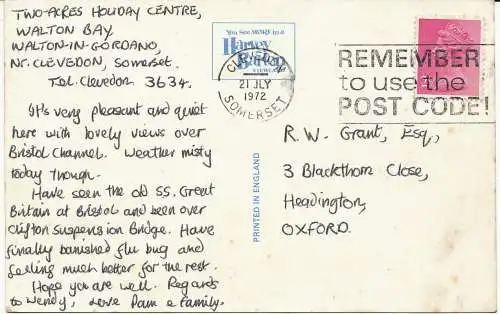 TWO-ACRES HOLIDAY CENTRE,
WALTON BAY,
WALTON-IN-GORDANO,
Nr. CLEVEDON, Somerset.
Tel. Clevedon 3634.
It's very pleasant and quiet
here with lovely views over
Bristol Channel. Weather misty
today though.
Have seen the old SS. Great
Britain at Bristol and been over
Clifton Suspension Bridge. Have
finally banished flu bug and
feeling much better for the rest.
Hope you are well. Regards
to Wendy, Love Pam & family.
You See MORE in a
Harvey
Barton
VIEWCARD
CLEVEDON
21 JLY
1972
SOMERSET
REMEMBER
to use the
POST CODE!
PRINTED IN ENGLAND
R. W. Grant, Esq.,
3 Blackthorn Close,
Headington,
OXFORD.